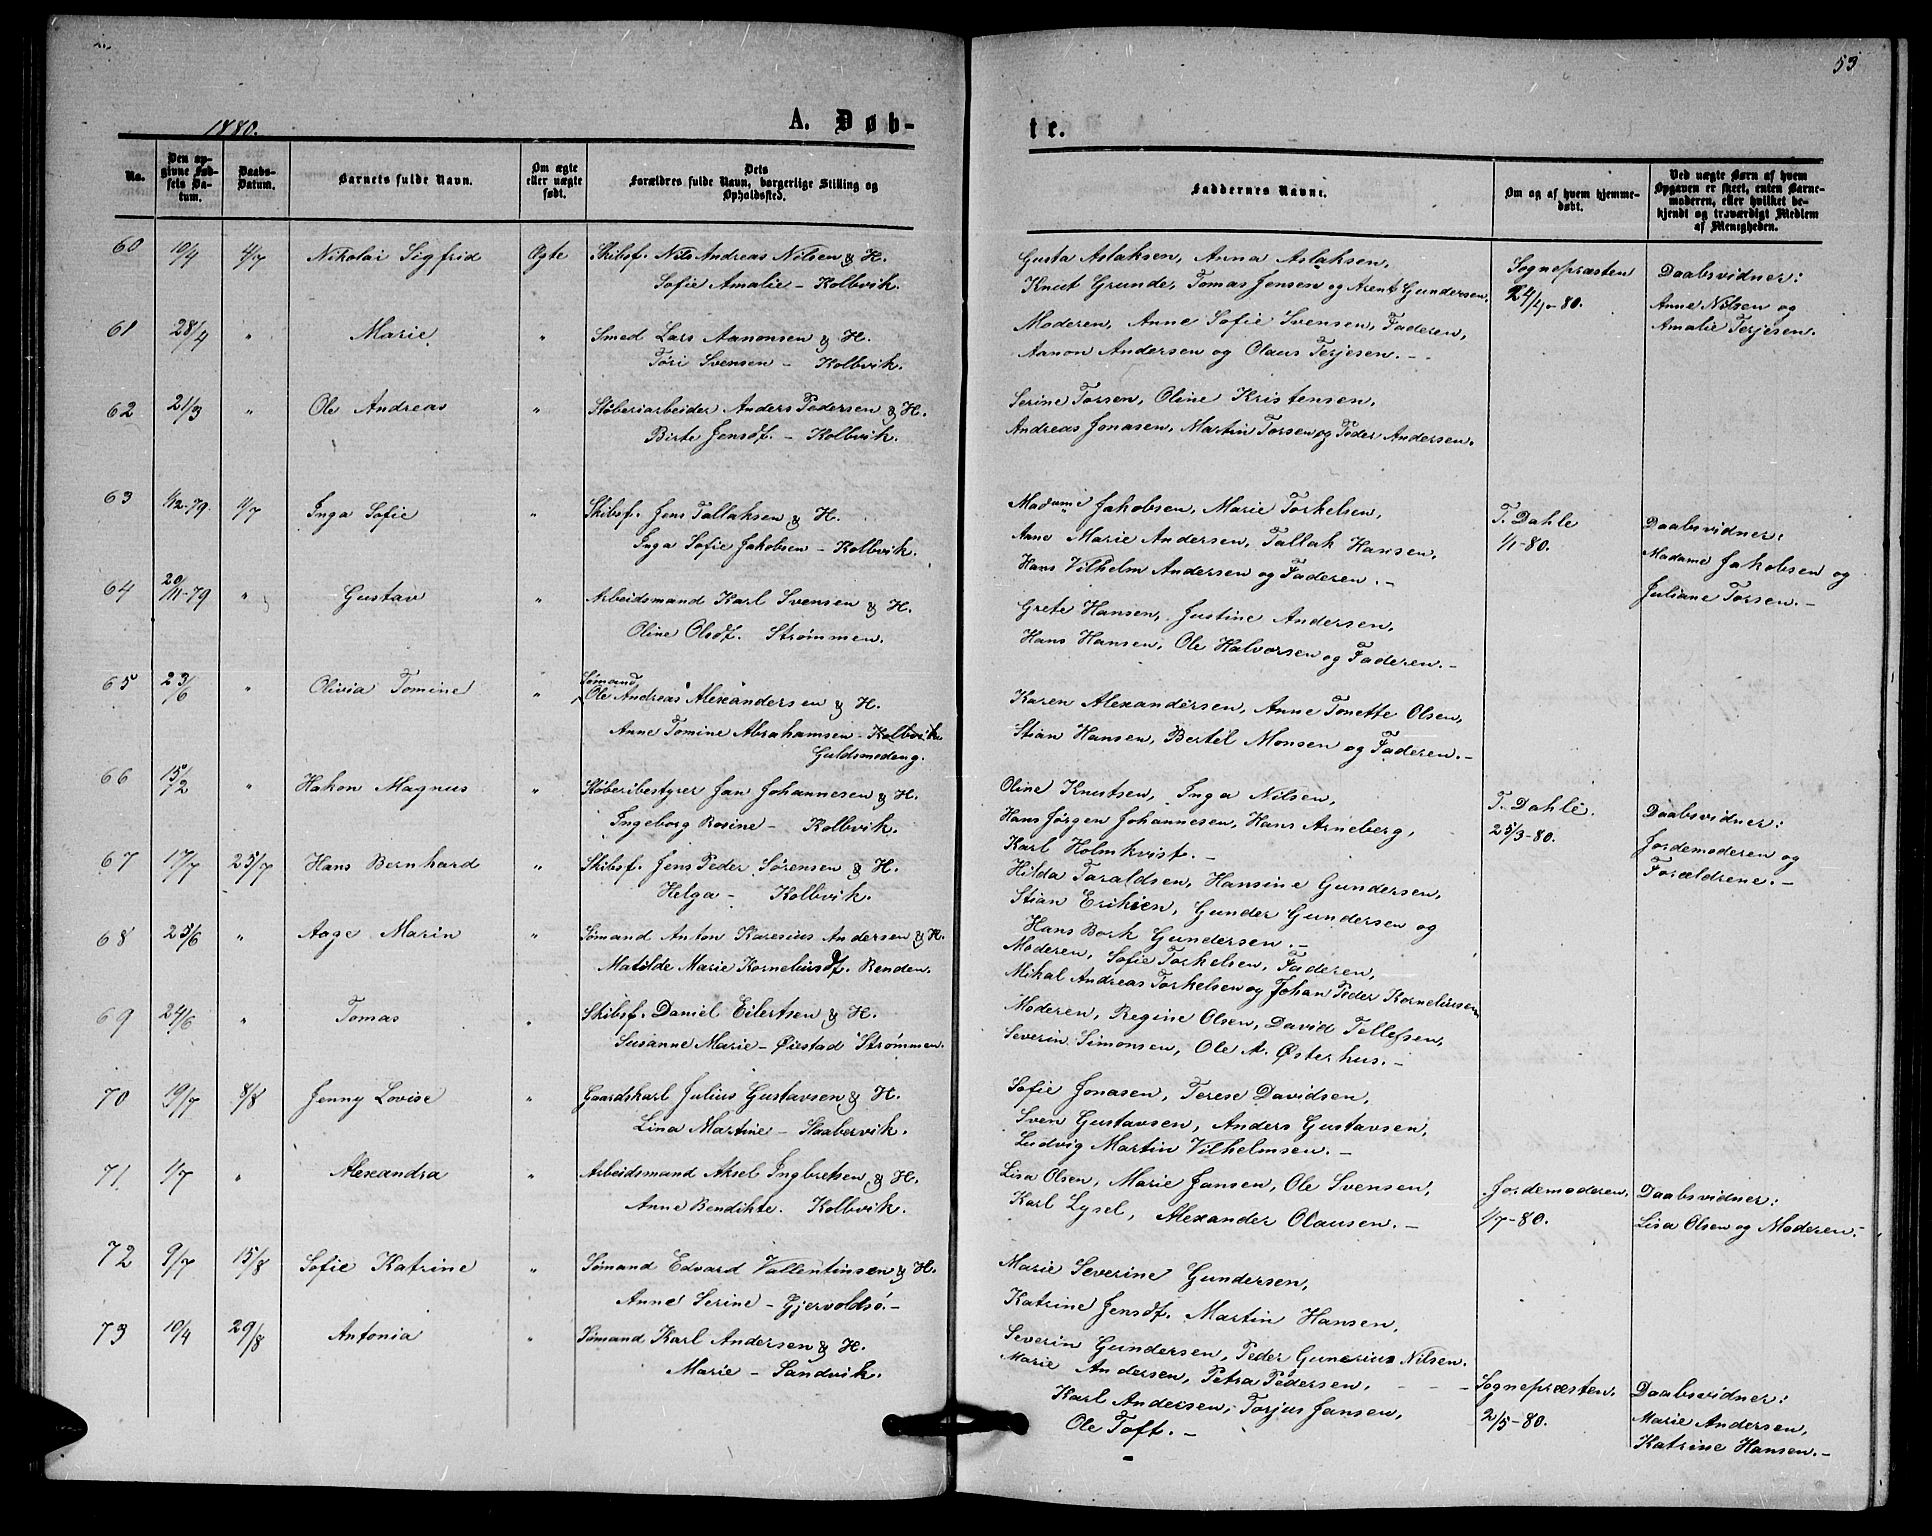 53
1880.
A. Døb-
te.
No.
Den op-
givne Fød-
sels Da-
tum.
Daabs-
Datum.
Barnets fulde Navn.
Om ægte
eller uægte
født.
Dets
Forældres fulde Navn, borgerlige Stilling og
Opholdssted.
Faddernes Navne.
Om og af hvem hjemme-
døbt.
Ved uægte Børn af hvem
Opgaven er skeet, enten Barne-
moderen, eller hvilket be-
kjendt og troværdigt Medlem
af Menigheden.
60 10/4 4/7 Nikolai Sigfrid Ægte Skibsf. Nils Andreas Nilsen & H.
Sofie Amalie - Kolbvik.
Gusta Aslaksen, Anna Aslaksen,
Knut Grunde, Tomas Jensen og Arent Gundersen.
Sognepræsten
24/4-80.
Daabsvidner:
Anne Nilsen og
Amalie Terjesen.
61 28/4 " Marie " Smed Lars Aanonsen & H.
Tori Svensen - Kolbvik.
Moderen, Anne Sofie Svensen, Faderen,
Aanon Andersen og Olaus Terjesen. -
62 21/3 " Ole Andreas " Støberiarbeider Anders Pedersen & H.
Birte Jensdf. - Kolbvik.
Serine Torsen, Oline Kristensen,
Andreas Jonasen, Martin Torsen og Peder Andersen.
63 1/12-79. 11/7 Inga Sofie " Skibsf. Jens Tallaksen & H.
Inga Sofie Jakobsen - Kolbvik.
Madame Jakobsen, Marie Torkelsen,
Anne Marie Andersen, Tallak Hansen,
Hans Vilhelm Andersen og Faderen. -
T. Dahle
1/1-80.
Daabsvidner:
Madame Jakobsen og
Juliane Torsen. -
64 20/11-79 " Gustav " Arbeidsmand Karl Svensen & H.
Oline Olsdf. Strømmen.
Grete Hansen, Justine Andersen,
Hans Hansen, Ole Halvorsen og Faderen. -
65 23/6 " Olivia Tomine " Sømand
Ole Andreas Alexandersen & H.
Anne Tomine Abrahamsen - Kolbvik
Guldsmedeng.
Karen Alexandersen, Anne Tonette Olsen,
Stian Hansen, Bertil Monsen og Faderen. -
66 15/2 " Hakon Magnus " Støberibestyrer Jan Johannesen & H.
Ingeborg Rosine - Kolbvik.
Oline Knutsen, Inga Nilsen,
Hans Jørgen Johannesen, Hans Arneberg,
Karl Holmkvist. -
T. Dahle.
25/3-80.
Daabsvidner:
Jordemoderen og
Forældrene. -
67 17/7 25/7 Hans Bernhard " Skibsf. Jens Peder Sørensen & H.
Helga - Kolbvik.
Hilda Taraldsen, Hansine Gundersen,
Stian Eriksen, Gunder Gundersen og
Hans Bork Gundersen. -
68 25/6 " Aage Marin " Sømand Anton Karesius Andersen & H.
Matilde Marie Korneliusdf. Renden.
Moderen, Sofie Torkelsen, Faderen,
Mikal Andreas Torkelsen og Johan Peder Korneliussen
69 24/6 " Tomas " Skibsf. Daniel Eilertsen & H.
Susanne Marie - Øiestad Strømmen.
Moderen, Regine Olsen, David Tellefsen,
Severin Simonsen, Ole A. Østerhus. -
70 19/7 8/8 Jenny Lovise " Gaardskarl Julius Gustavsen & H.
Lina Martine - Skabervik.
Sofie Jonasen, Terese Davidsen,
Sven Gustavsen, Anders Gustavsen,
Ludvig Martin Vilhelmsen. -
71 1/7 " Alexandra " Arbeidsmand Aksel Ingbretsen & H.
Anne Bendikte. Kolbvik.
Lisa Olsen, Marie Jansen, Ole Svensen,
Karl Lysel, Alexander Olausen. -
Jordemoderen,
1/7-80.
Daabsvidner:
Lisa Olsen og Moderen. -
72 9/7 15/8 Sofie Katrine " Sømand Edvard Vallentinsen & H.
Anne Serine - Gjervoldsø. -
Marie Severine Gundersen,
Katrine Jensdf. Martin Hansen,
Severin Gundersen, Peder Gunerius Nilsen.
73 10/4 29/8 Antonia " Sømand Karl Andersen & H.
Marie - Sandvik.
Marie Andersen, Petra Pedersen,
Karl Andersen, Torjus Jansen,
Ole Toft. -
Sognepræsten,
2/5-80.
Daabsvidner:
Marie Andersen,
Katrine Hansen. -